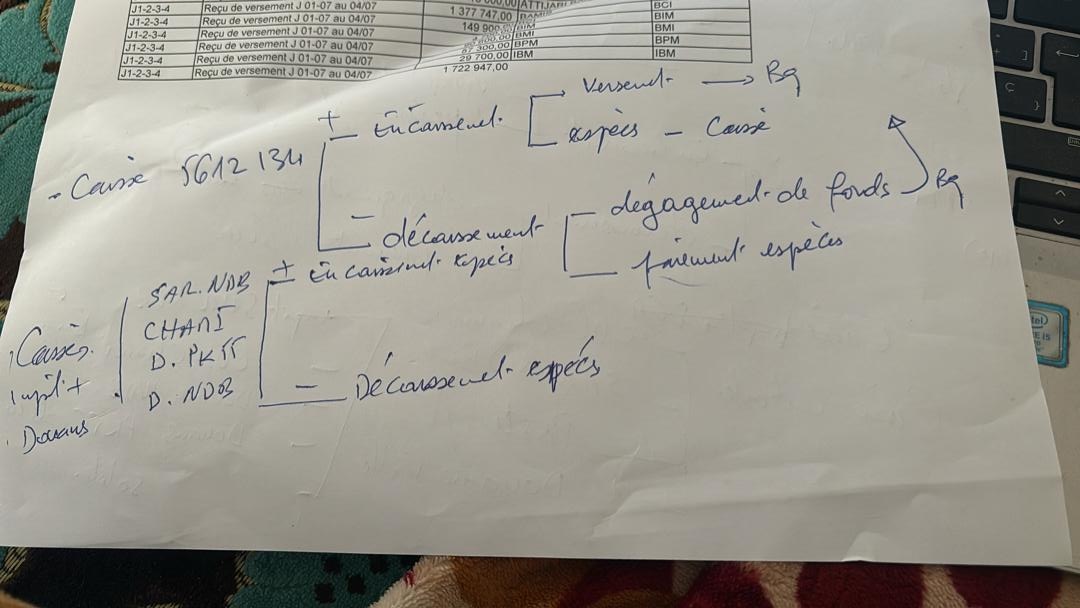 J1-2-3-4 Reçu de versement J 01-07 au 04/07 ATTIJARI BCI
J1-2-3-4 Reçu de versement J 01-07 au 04/07 1 377 747,00 BIM
J1-2-3-4 Reçu de versement J 01-07 au 04/07 149 900,00 BIM BMI
J1-2-3-4 Reçu de versement J 01-07 au 04/07 BMI BPM
J1-2-3-4 Reçu de versement J 01-07 au 04/07 300,00 BPM IBM
J1-2-3-4 Reçu de versement J 01-07 au 04/07 29 700,00 IBM
1 722 947,00
- Caisse 5612 134
+ Encaissemt.
Versemt. → Bq
espècs - Caisse
- décaissement
dégagement de fonds Bq
paiement espèces
Caisses
Impôt +
Douans
SAR. NDB
CHAMI
D. PK
D. NDB
+ Encaissemt. espècs
- Décaissemet espécs